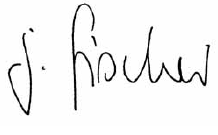 J. Fischer